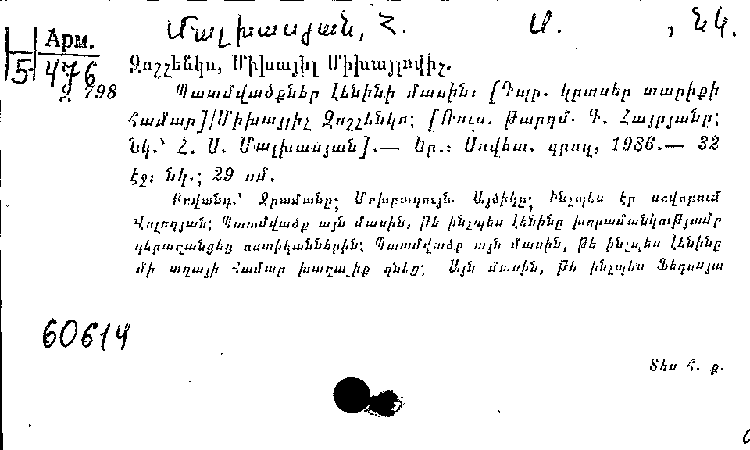 Մալխասյան, Հ. Ս., նկ.
Арм.
5 476
Զ 798
Զոշչենկո, Միխայիլ Միխայլովիչ.
Պատմվածքներ Լենինի մասին: [Դպր. կրտսեր տարիքի
համար]/Միխայիլ Զոշչենկո; [Ռուս. թարգմ. Գ. Հայրյանը;
նկ.՝ Հ. Ս. Մալխասյան].— Եր.: Սովետ. գրող, 1986.— 32
էջ: նկ.; 29 սմ.
Բովանդ.՝ Գրամանը; Մոխրագույն Այծիկը; Ինչպես էր սովորում
Վոլոդյան; Պատմվածք այն մասին, թե ինչպես Լենինը խորամանկությամբ
գերազանցեց ոստիկաններին; Պատմվածք այն մասին, թե ինչպես Լենինը
մի տղայի համար խաղալիք գնեց; Այն մասին, թե ինչպես
60614
Տես հ. ք.